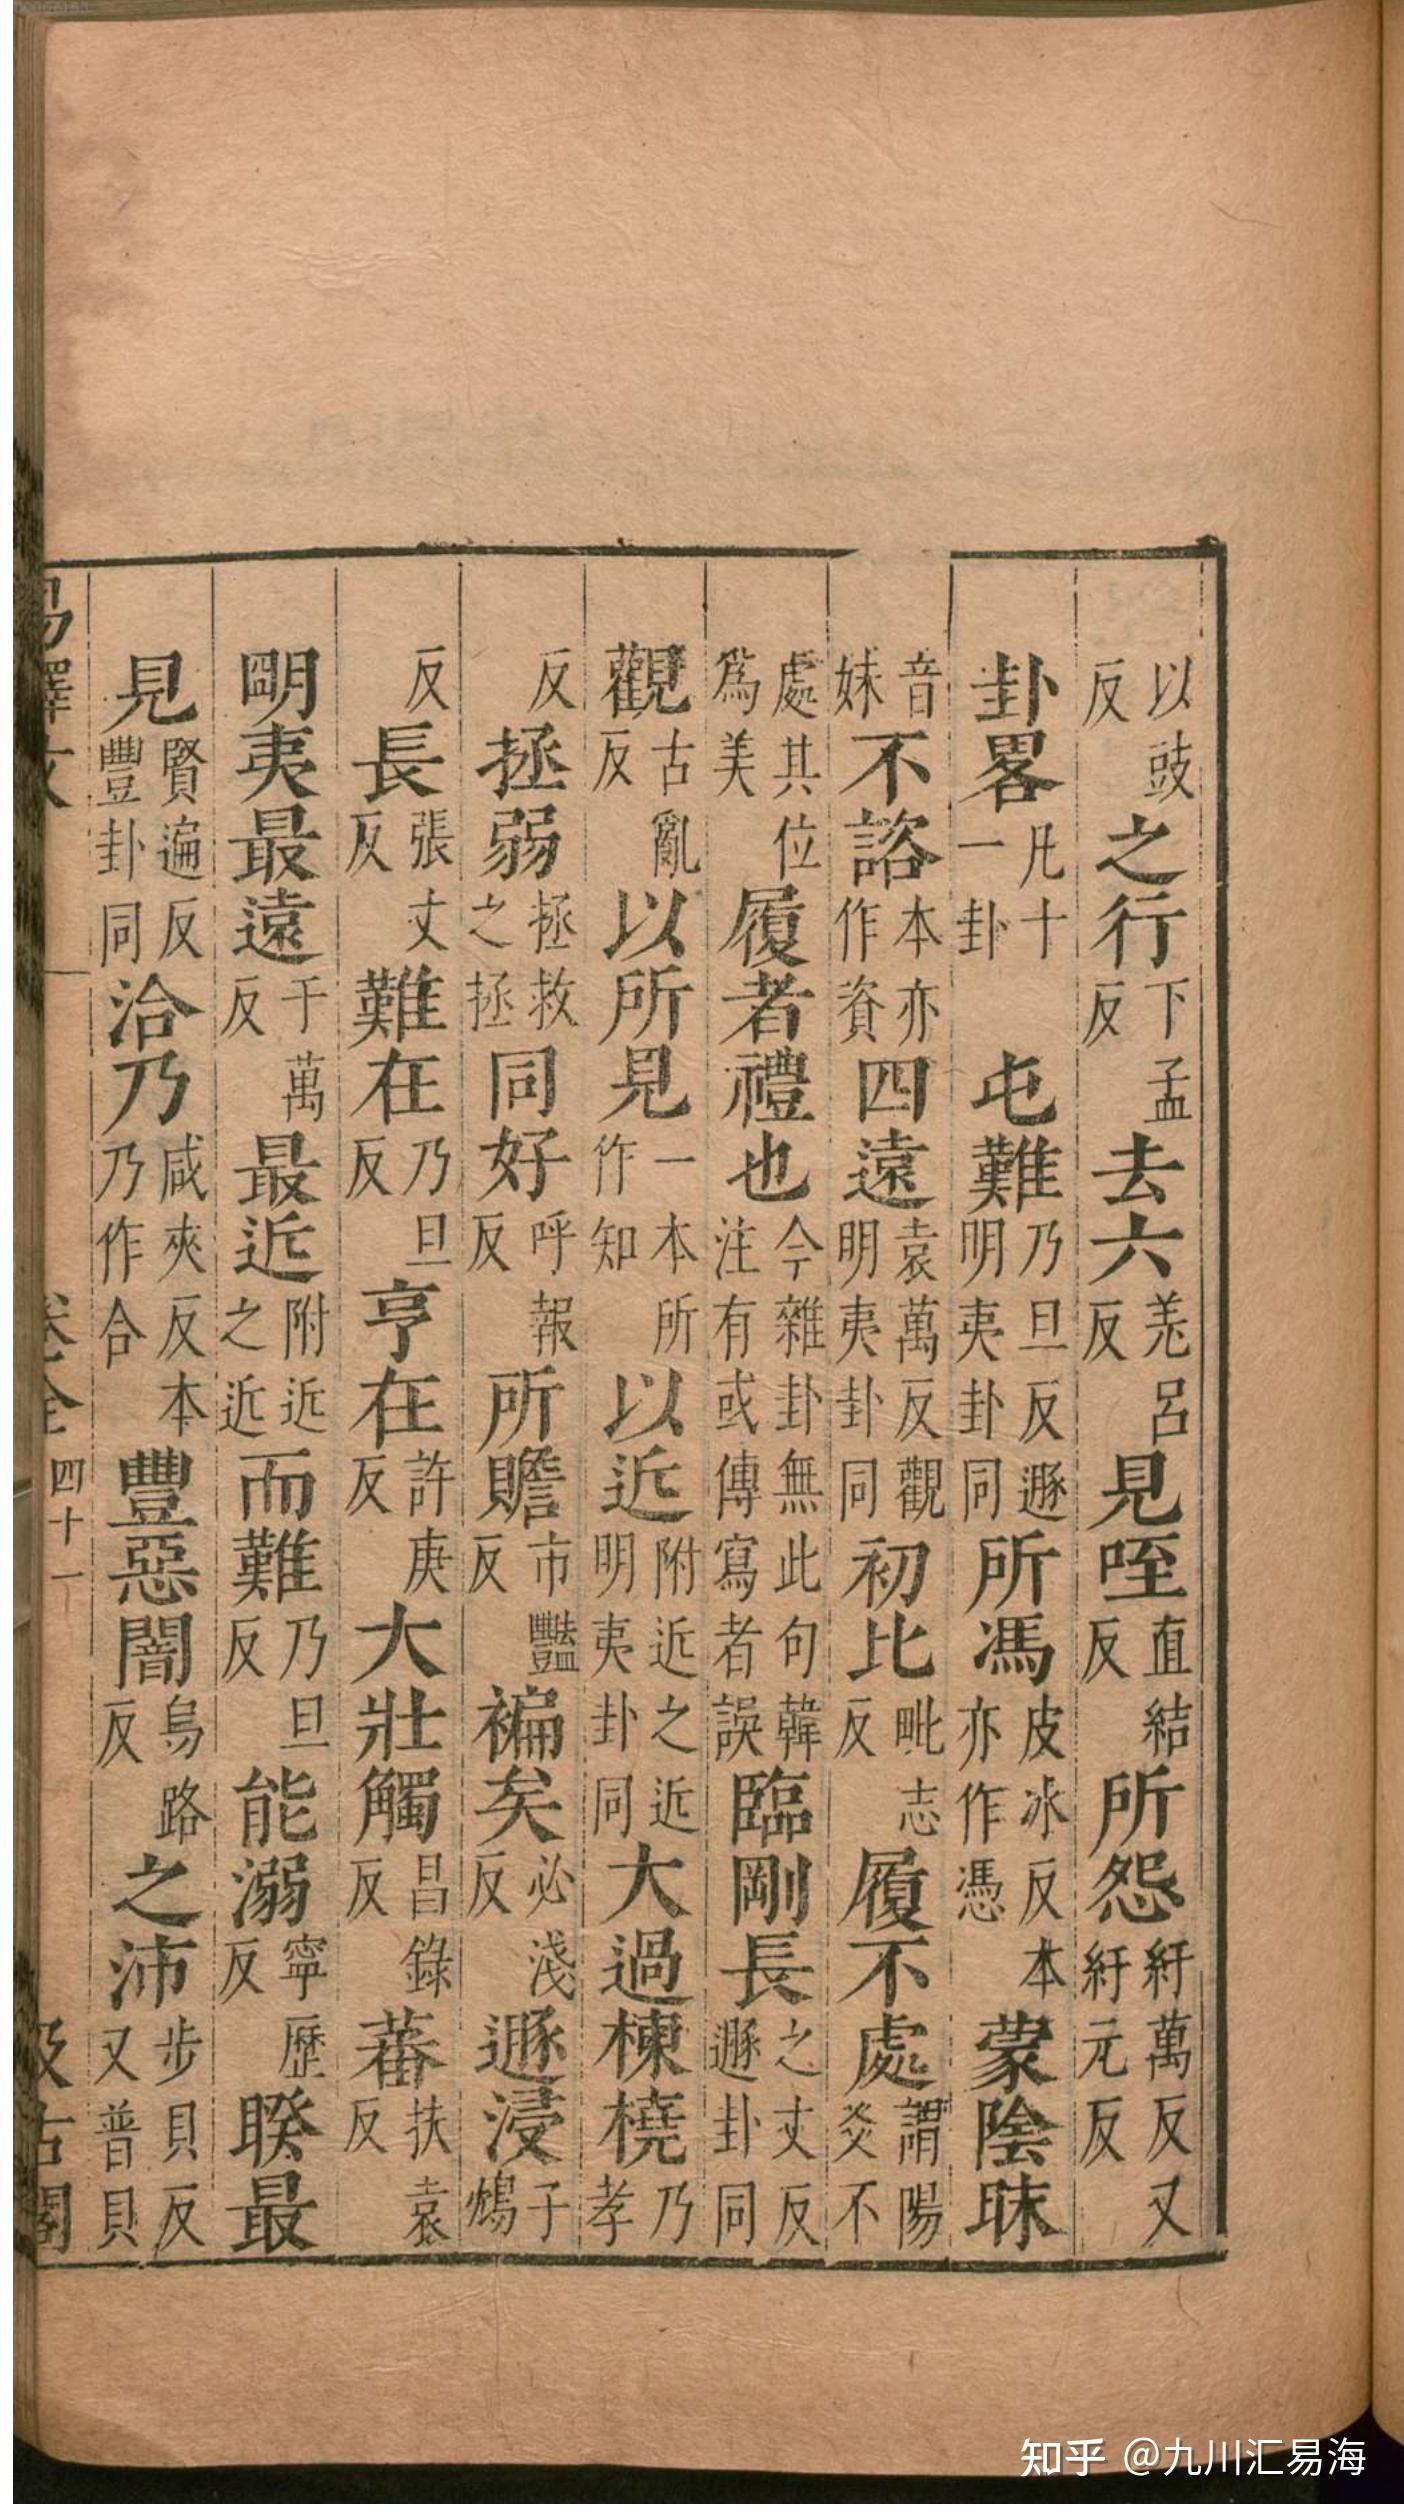 以豉反之行下孟反去六羌呂反見咥直結反所怨紆萬反又紆元反
卦畧凡十一卦屯難乃旦反遯明夷卦同所馮皮冰反本亦作憑蒙陰昧
音妹不諮本亦作資四遠袁萬反觀明夷卦同初比毗志反履不處謂陽爻不
處其位爲美履者禮也今雜卦無此句韓注有或傳寫者誤臨剛長之丈反遯卦同
觀古亂反以所見一本所作知以近附近之近明夷卦同大過棟橈乃孝
反拯弱拯救之拯同好呼報反所贍市豔反褊矣必淺反遯浸子鴆
反長張丈反難在乃旦反亨在許庚反大壯觸昌錄反蕃扶袁反
明夷最遠于萬反最近附近之近而難乃旦反能溺寧歷反睽最
見賢遍反豐卦同洽乃咸夾反本乃作合豐惡闇烏路反之沛步貝反又普貝
易釋文 卷全 四十一 汲古閣
知乎 @九川汇易海